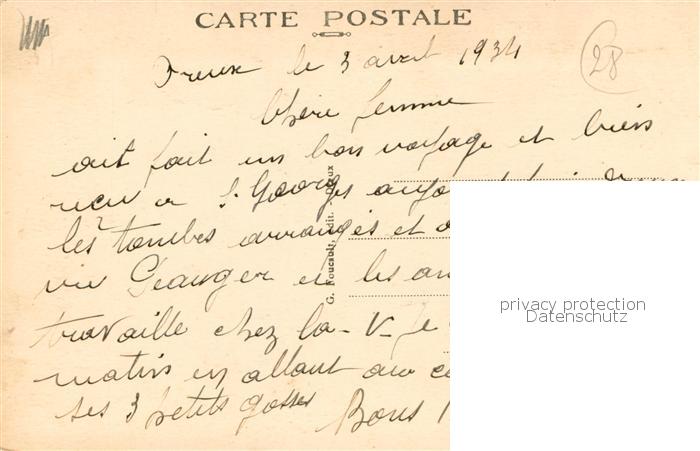 CARTE POSTALE
28
Dreux le 3 avril 1934
Chère femme
ait fait un bon voyage et bien
reçu a St Georges
les tombes arrangés et
vu et les
travaille chez la
matin en allant au
ses 3 petits gosses Bons
G. Foucault, édit. Dreux
privacy protection
Datenschutz